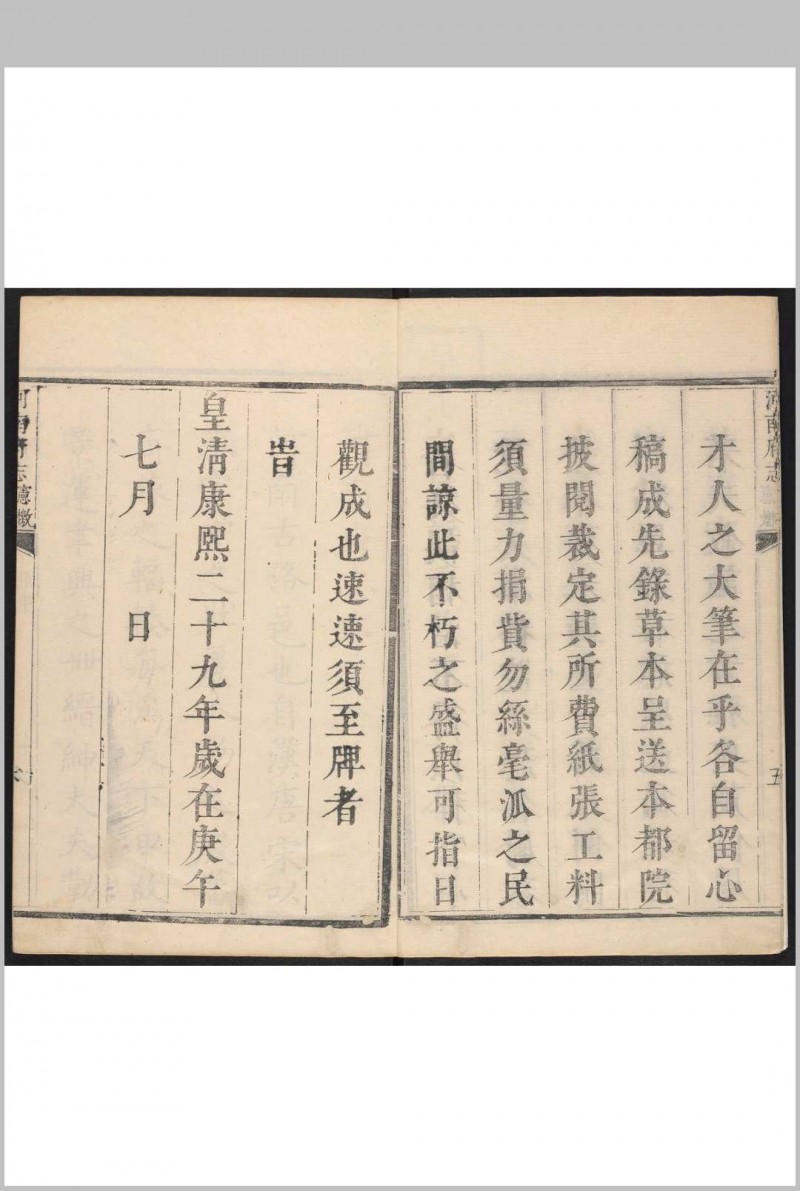 河南府志
五
才人之大筆在乎各自留心
稿成先錄草本呈送本都院
披閱裁定其所費紙張工料
須量力捐貲勿絲毫泒之民
間諒此不朽之盛舉可指日
觀成也速速須至牌者
旹
皇清康熙二十九年歲在庚午
七月　日
河南府志憲檄